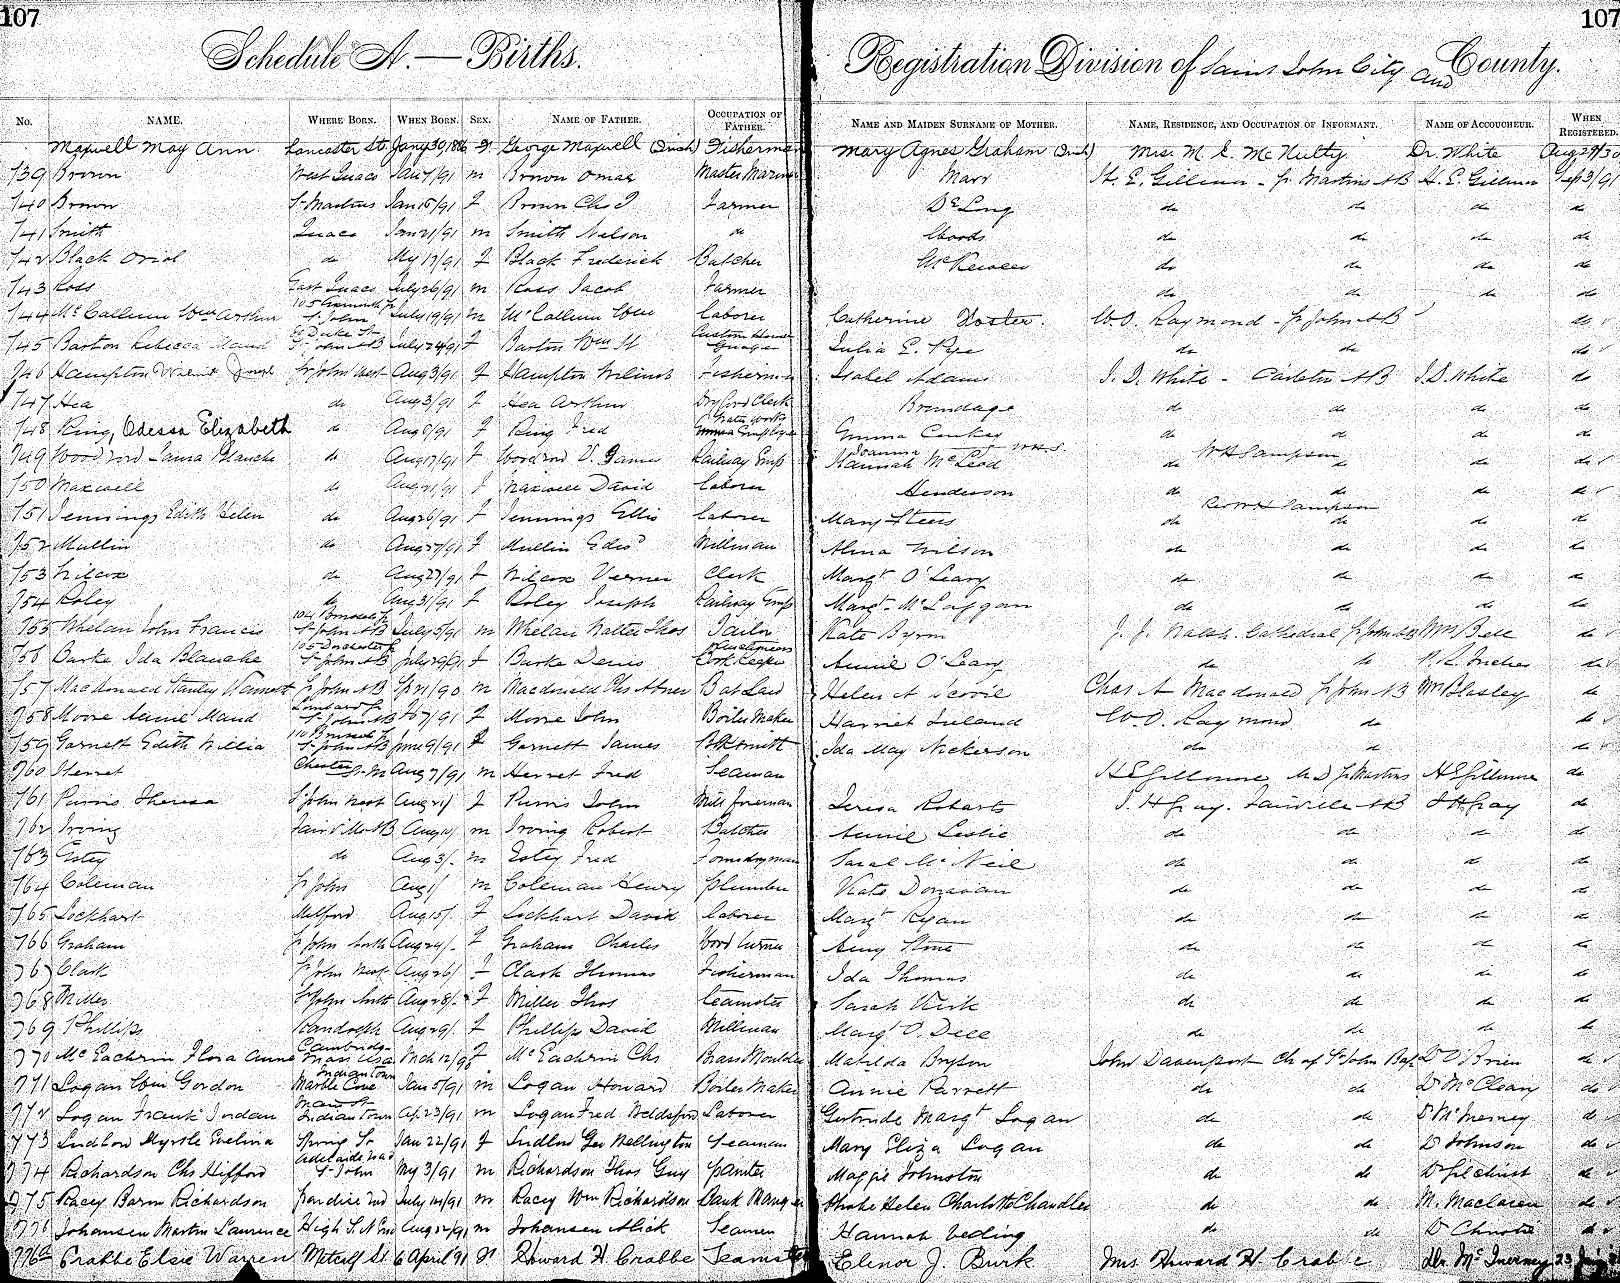 107
107
Schedule A. — Births.
Registration Division of Saint John City and County.
No. NAME. WHERE BORN. WHEN BORN. SEX. NAME OF FATHER. OCCUPATION OF FATHER. NAME AND MAIDEN SURNAME OF MOTHER. NAME, RESIDENCE, AND OCCUPATION OF INFORMANT. NAME OF ACCOUCHEUR. WHEN REGISTERED.
Maxwell May Ann. Lancaster St. George Maxwell (Irish) Fisherman Mary Agnes Graham (Irish) Mrs. M. E. McNulty Dr. White
739 Brown West Quaco Jan 7/91 m Brown Omar Master Mariner Marr H. E. Gillmor - St Martins NB H. E. Gillmor Sep 3/91
740 Brown St Martins Jan 15/91 F Brown Chs I Farmer DeLong do do do do
741 Smith Quaco Jan 21/91 m Smith Nelson do Woods do do do do
742 Black Oriol do May 17/91 F Black Frederick Butcher do do do do
743 Ross East Quaco July 26/91 m Ross Jacob Farmer do do do do
744 McCallum Wm Arthur St John July 19/91 m McCallum Wm Laborer Catherine Foster. W. O. Raymond - St John NB do
745 Barton Rebecca Maud St John NB July 24/91 F Barton Wm H Custom House Julia E. Pye do do do
746 Hampton St John West Aug 3/91 F Hampton Wilmot Fisherman Isabel Adams J. D. White - Carleton NB J. D. White do
747 Hea do Aug 3/91 F Hea Arthur Dry Good Clerk Brundage do do do do
748 King, Odessa Elizabeth do Aug 6/91 F King Fred Water Works Employee Emma Conkey do do do do
749 Woodford Laura Blanche do Aug 17/91 F Railway Emp Joanna Hannah McLeod W.H.S. do WH Sampson do do do
750 Maxwell do Aug 21/91 F Maxwell David Laborer Henderson do do do do
751 Jennings Edith Helen do Aug 26/91 F Jennings Ellis Laborer Mary Steers do Rev WH Sampson do do do
752 Mullin do Aug 27/91 F Mullin Edwd Millman Alma Wilson do do do do
753 Wilcox do Aug 27/91 F Wilcox Verner Clerk Margt O'Leary do do do do
754 Roley do Aug 31/91 F Roley Joseph Railway Emp Margt McLaggan do do do do
755 Whelan John Francis St John NB July 5/91 m Whelan Walter Thos Tailor Kate Byrn J. J. Walsh. Cathedral St John NB Mrs Bell do
756 Burke Ida Blanche 105 Dorchester St St John NB July 29/91 F Burke Denis Book Keeper Annie O'Leary do do P. R. Inches do
757 MacDonald Stanley St John NB m Macdonald Chs Abner Helen A Scovil Chas A Macdonald St John NB do
758 Moore Annie Maud Lombard St St John NB F Moore John Boiler Maker Harriet Ireland W. O. Raymond do do
759 Garnett Edith Willia 110 Brussels St St John NB June 9/91 F Garnett James Bksmith Ida May Nickerson do do do
760 Herret Aug 7/91 m Herret Fred Seaman H E Gillmore M D St Martins H E Gillmore do
761 Purvis Theresa St John West Aug 21/ F Purvis John Mill foreman Teresa Roberts J. H Gray. Fairville NB J H Gray do
762 Irving Fairville NB m Irving Robert Butcher Annie Leslie do do do do
763 Estey do Aug 3/. m Estey Fred Foundryman Sarah McNeil do do do do
764 Coleman St John Aug 1/ m Coleman Henry Plumber Kate Donavan do do do do
765 Lockhart Milford Aug 15/. F Lockhart David Laborer Margt Ryan do do do do
766 Graham St John North Aug 24/. F Graham Charles Wood turner Amy Stone do do do do
767 Clark St John West Aug 26/ F Clark Thomas Fisherman Ida Thomas do do do do
768 Miller St John North Aug 28/. F Miller Thos teamster Sarah Kirk do do do do
769 Phillips Randolph Aug 29/. F Phillips David Millman Margt O. Dell do do do do
770 McEachrin Flora Anne Cambridge Mass USA Mch 12/90 F McEachrin Chs Brass Moulder Matilda Bryson John Davenport Ch of St John Bap Dr O'Brien do
771 Logan Wm Gordon Indiantown Marble Cove Jan 5/91 m Logan Howard Boiler Maker Annie Parrett do do Dr McCleary do
772 Logan Frank Jordan Main St Indiantown Ap 23/91 m Logan Fred Weldsford Laborer Gertrude Margt Logan do do Dr McInerney do
773 Ludlow Myrtle Evelina Spring St Jan 22/91 F Ludlow Geo Wellington Seaman Mary Eliza Logan do do Dr Johnson do
774 Richardson Chs Hifford Adelaide road St John May 3/91 m Richardson Thos Guy painter Maggie Johnston do do Dr Gilchrist do
775 Racey Barm Richardson July 14/91 m Racey Wm Richardson Bank Manager Phoebe Helen Charlotte Chandler do do M. Maclaren do
776 Johansen Martin Laurence High St N End Aug 22/91 m Johansen Alick Seamen Hannah Veding do do Dr Christie do
776a Crabbe Elsie Warren Metcalf St 6 April 91 F Howard H Crabbe Teamster Elenor J. Burk Mrs Howard H. Crabbe Dr. McInerney